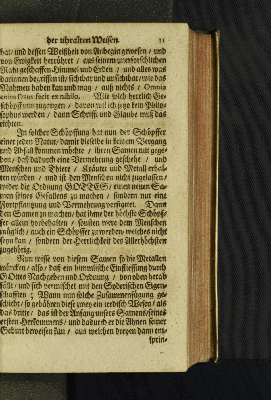 der uhralten Weisen. 31
hat/ und dessen Weißheit von Anbegin gewesen / und
von Ewigkeit herrühret / aus seinem unerforschlichen
Raht geschaffen Himmel und Erden / und alles was
darinnen begriffen ist/ sichtbar und unsichtbar/ wie das
Nahmen haben kan und mag / auß nichts / Omnia
enim Deus fecit ex nihilo. Wie solch herrlich Ge-
schöpff nun zugangen / davon will ich jetzo kein Philo-
sophus werden / dann Schrifft und Glaube muß das
richten.
In solcher Schöpffung hat nun der Schöpffer
einer jeden Natur/ damit dieselbe in keinen Abgang
und Abfall kommen möchte / ihren Samen mit gege-
ben/ daß dadurch eine Vermehrung geschehe / und
Menschen und Thiere / Kräuter und Metall erhal-
ten würden / und ist den Menschen nicht zugelassen/
wider die Ordnung GOTTES / einen neuen Sa-
men seines Gefallens zu machen / sondern nur eine
Fortpflantzung und Vermehrung verstattet. Dann
den Samen zu machen hat ihme der höchste Schöpf-
fer allein vorbehalten / sonsten were dem Menschen
müglich / auch ein Schöpffer zu werden/ welches nicht
seyn kan / sondern der Herrlichkeit des Allerhöchsten
zugehörig.
Nun wisse von diesem Samen so die Metallen
würcken/ also/ daß ein himmlische Einfliessung durch
GOttes Nachgeben und Ordnung / von oben herab
fällt / und sich vermischet mit den Syderischen Eigen-
schafften ; Wann nun solche Zusammenfügung ge-
schicht/ so gebähren diese zwey ein irrdisch Wesen/ als
das dritte / das ist der Anfang unsers Samens/ seines
ersten Herkommens / und dadurch er die Ahnen seiner
Geburt beweisen kan / aus welchen dreyen dann ent-
sprin-